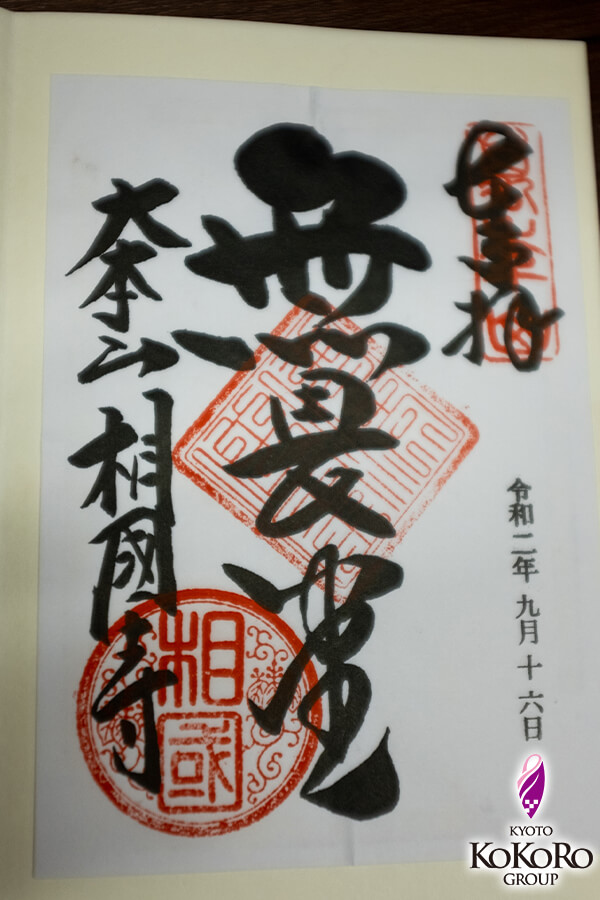 奉拝
無畏堂
大本山相國寺
相國
令和二年 九月 十六日
KYOTO
KOKORO
GROUP